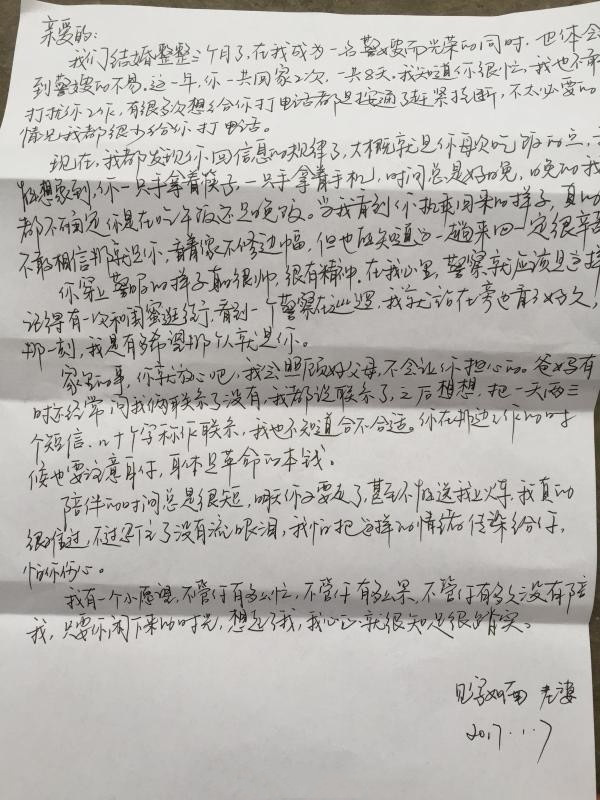 亲爱的:
我们结婚整整三个月了,在我成为一名警嫂而光荣的同时,也体会
到警嫂的不易。这一年,你一共回家2次,一共8天。我知道你很忙,我也不敢
打扰你工作,有很多次想给你打电话都是接通了赶紧挂断,不太必要的
情况我都很少给你打电话。
现在,我都发现你回信息的规律了,大概就是你每次吃饭的点,
能想象到,你一只手拿着筷子,一只手拿着手机,时间总是好晚,晚的我
都不确定你是在吃午饭还是晚饭。当我看到你执勤回来的样子,真的
不敢相信那就是你,看着像不修边幅,但也能知道这一趟来回一定很辛苦
你穿上警服的样子真的很帅,很有精神,在我心里,警察就应该是这样
记得有一次和闺蜜逛街,看到一个警察在巡逻,我就站在旁边看了好久,
那一刻,我是有多希望那个人就是你。
家里的事,你就放心吧,我会照顾好父母,不会让你担心的。爸妈有
时不经常问我俩联系了没有,我都说联系了,之后想想,把一天两三
个短信、几十个字称作联系,我也不知道合不合适。你在那边工作的时
候也要注意身体,身体是革命的本钱。
陪伴的时间总是很短,明天你又要走了,甚至不能送我上火车,我真的
很难过,不过忍住了没有流眼泪,我怕把这样的情绪传染给你,
怕你伤心。
我有一个小愿望,不管你有多么忙,不管你有多么累,不管你有多久没有陪
我,只要你闲下来的时光,想起了我,我心里就很知足很踏实。
见字如面 老婆
2017.1.7